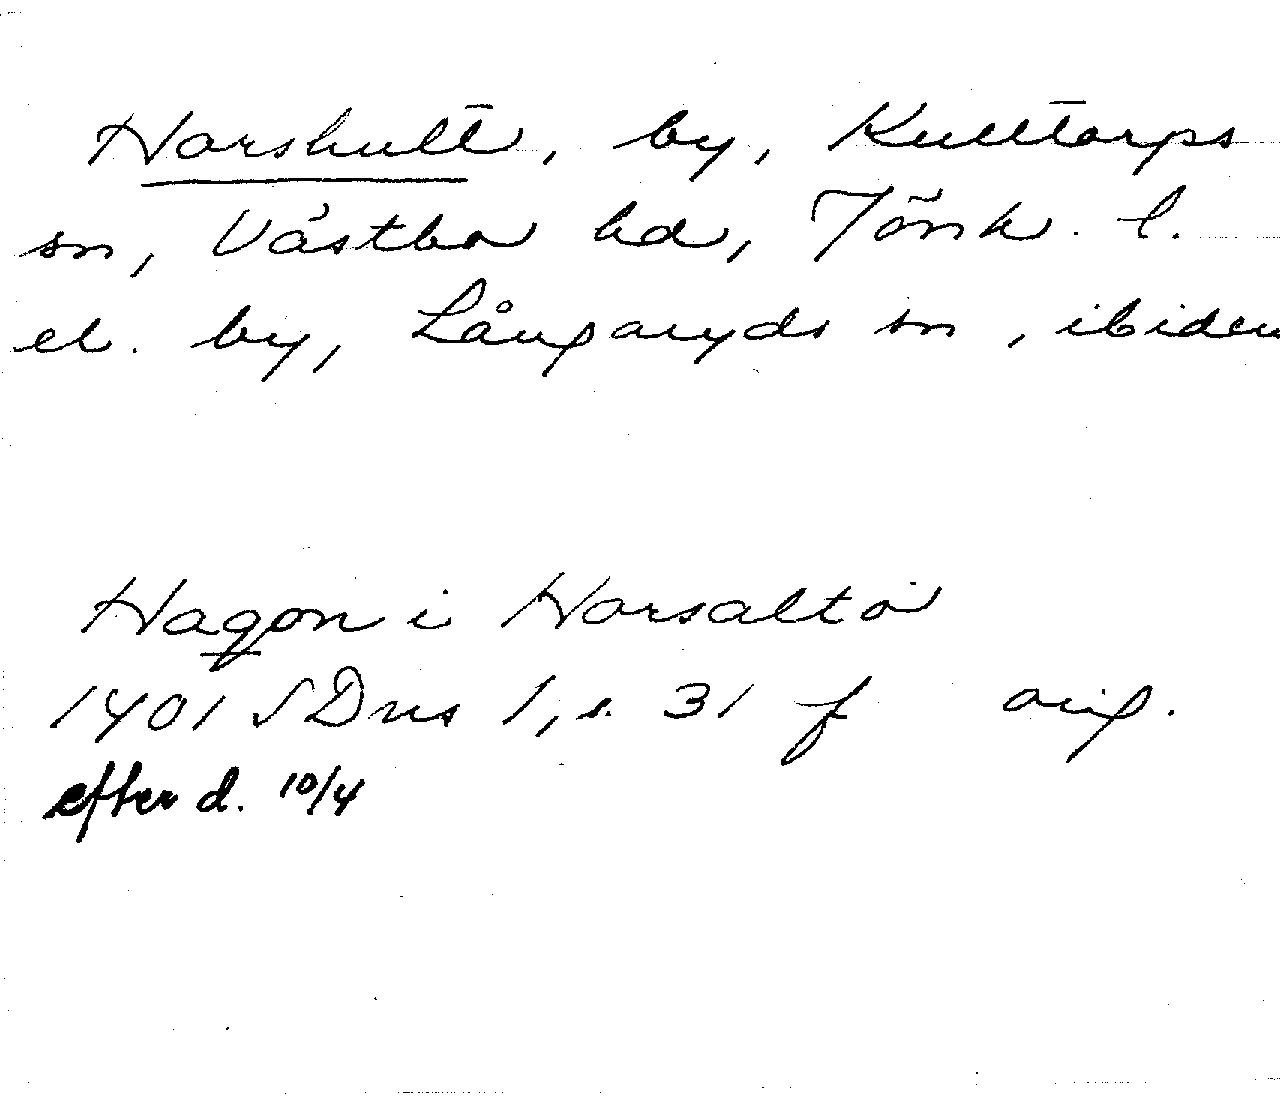 Horshult, by, Kulltorps
sn, Västbo hd, Jönk. l.
el. by, Långaryds sn, ibidem
Hagon i Horsalto
1401 SDns 1, s. 31 f orig.
efter d. 10/4